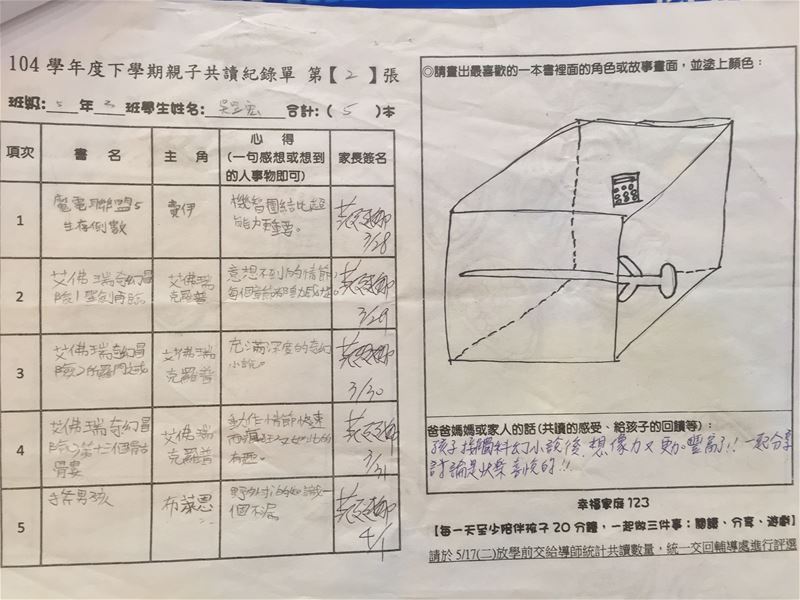 104 學年度下學期親子共讀紀錄單 第【2】張
班級:5年3班學生姓名: 合計:(5)本
項次 書名 主角 心得 (一句感想或想到的人事物即可) 家長簽名
1 魔電聯盟5 生存倒數 費伊 機智團結比超能力更重要。 3/28
2 艾佛瑞奇幻冒險1 聖劍 艾佛瑞 克羅普 意想不到的情節, 每個 3/29
3 艾佛瑞奇幻冒險2 艾佛瑞 克羅普 充滿深度的奇幻小說。 3/30
4 艾佛瑞奇幻冒險3 第十三個骷 艾佛瑞 克羅普 動作情節快速 有趣。 3/31
5 手斧男孩 布萊恩 野外求活的知識一個不漏 4/1
◎請畫出最喜歡的一本書裡面的角色或故事畫面,並塗上顏色:
爸爸媽媽或家人的話(共讀的感受、給孩子的回饋等):
孩子接觸科幻小說後,想像力又更加豐富了!! 一起分享
討論是快樂喜悅的!!
幸福家庭 123
【每一天至少陪伴孩子 20 分鐘,一起做三件事:閱讀、分享、遊戲】
請於 5/17(二)放學前交給導師統計共讀數量,統一交回輔導處進行評選